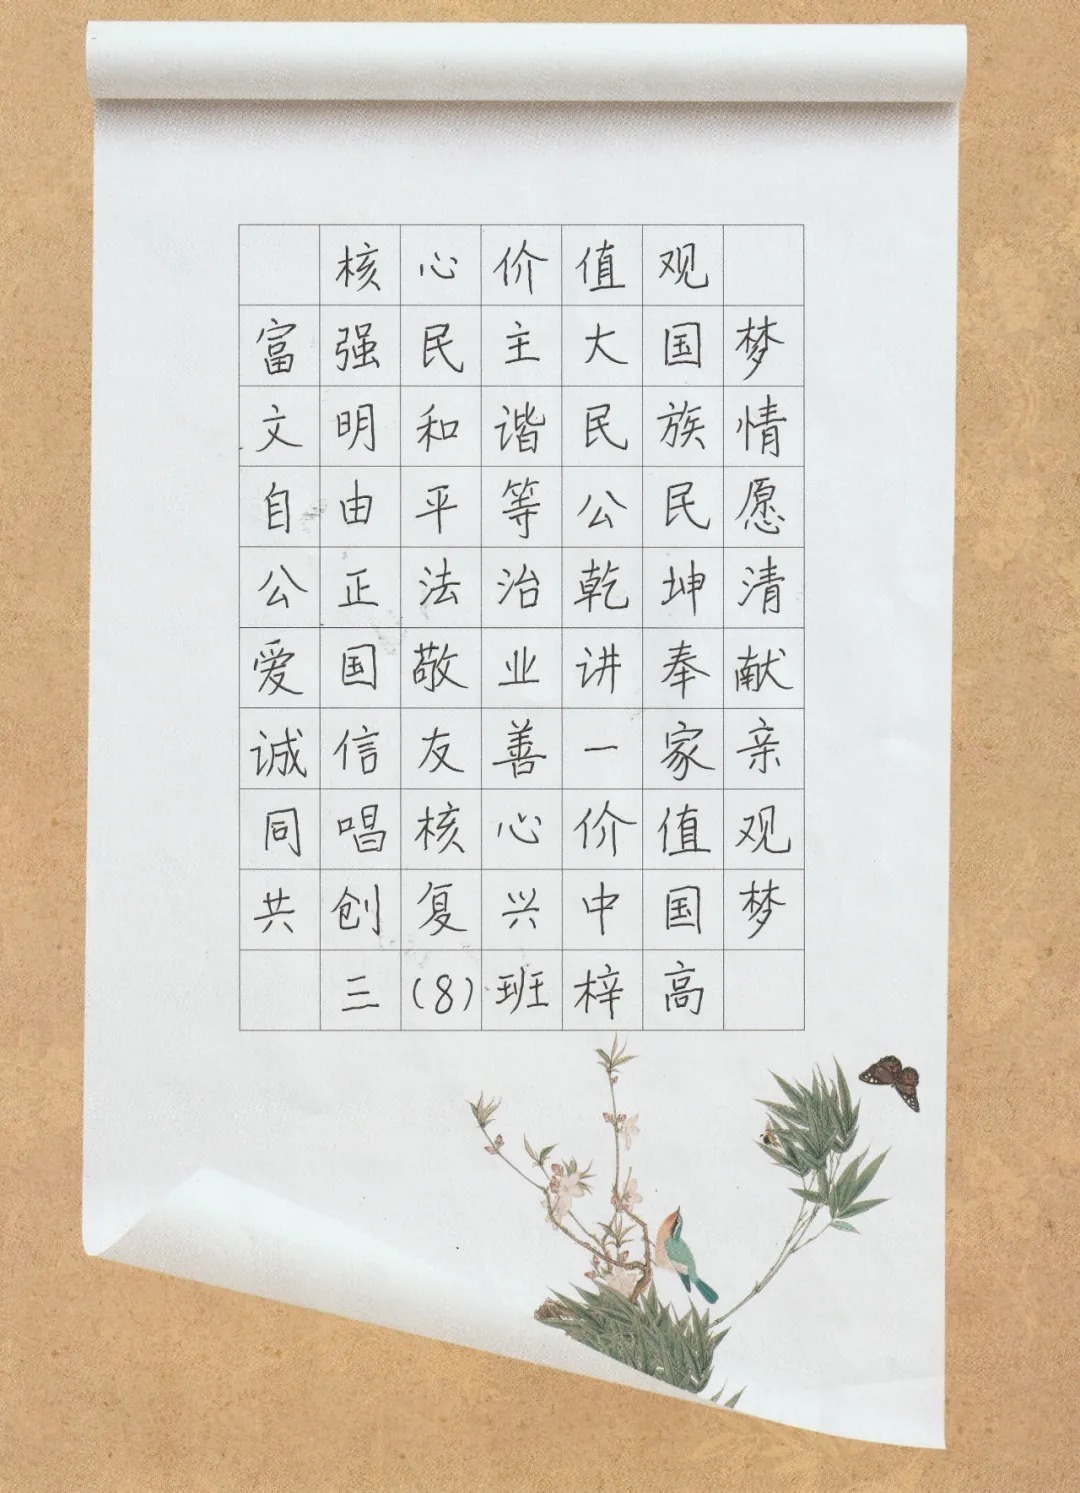 核心价值观
富强民主大国梦
文明和谐民族情
自由平等公民愿
公正法治乾坤清
爱国敬业讲奉献
诚信友善一家亲
同唱核心价值观
共创复兴中国梦
三(8)班梓高